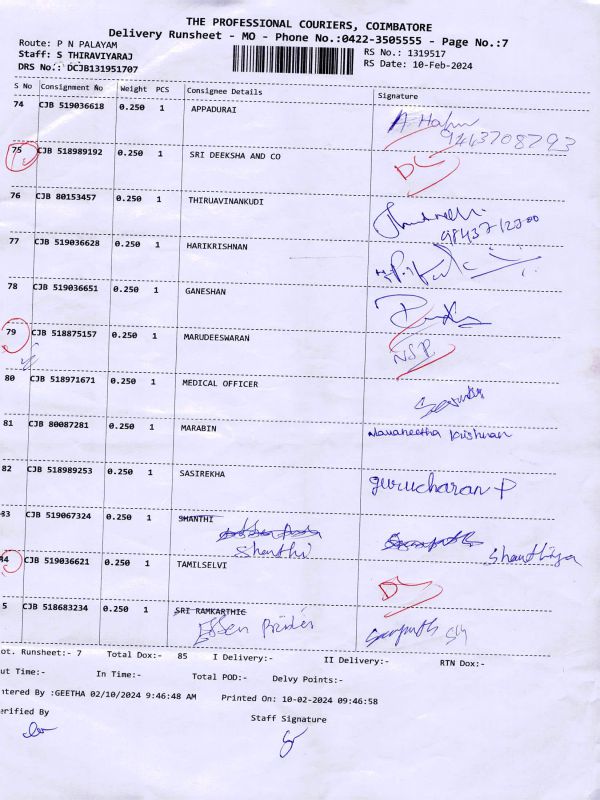 THE PROFESSIONAL COURIERS, COIMBATORE
Delivery Runsheet - MO - Phone No.:0422-3505555 - Page No.:7
Route: P N PALAYAM
Staff: S THIRAVIYARAJ
RS No.: 1319517
DRS No.: DCJB131951707
RS Date: 10-Feb-2024
S No Consignment No Weight PCS Consignee Details Signature
74 CJB 519036618 0.250 1 APPADURAI
9443708793
75 CJB 518989192 0.250 1 SRI DEEKSHA AND CO DL
76 CJB 80153457 0.250 1 THIRUVINANKUDI
77 CJB 519036628 0.250 1 HARIKRISHNAN
78 CJB 519036651 0.250 1 GANESHAN
79 CJB 518875157 0.250 1 MARUDEESWARAN NSP
80 CJB 518971671 0.250 1 MEDICAL OFFICER
81 CJB 80087281 0.250 1 MARABIN Navaneetha Krishnan
82 CJB 518989253 0.250 1 SASIREKHA gurucharan P
83 CJB 519067324 0.250 1 SHANTHI
Shanthi Shanthiya
84 CJB 519036621 0.250 1 TAMILSELVI DL
5 CJB 518683234 0.250 1 SRI RAMKARTHIC
ot. Runsheet:- 7 Total Dox:- 85 I Delivery:- II Delivery:- RTN Dox:-
ut Time:- In Time:- Total POD:- Delvy Points:-
ntered By :GEETHA 02/10/2024 9:46:48 AM Printed On: 10-02-2024 09:46:58
erified By Staff Signature